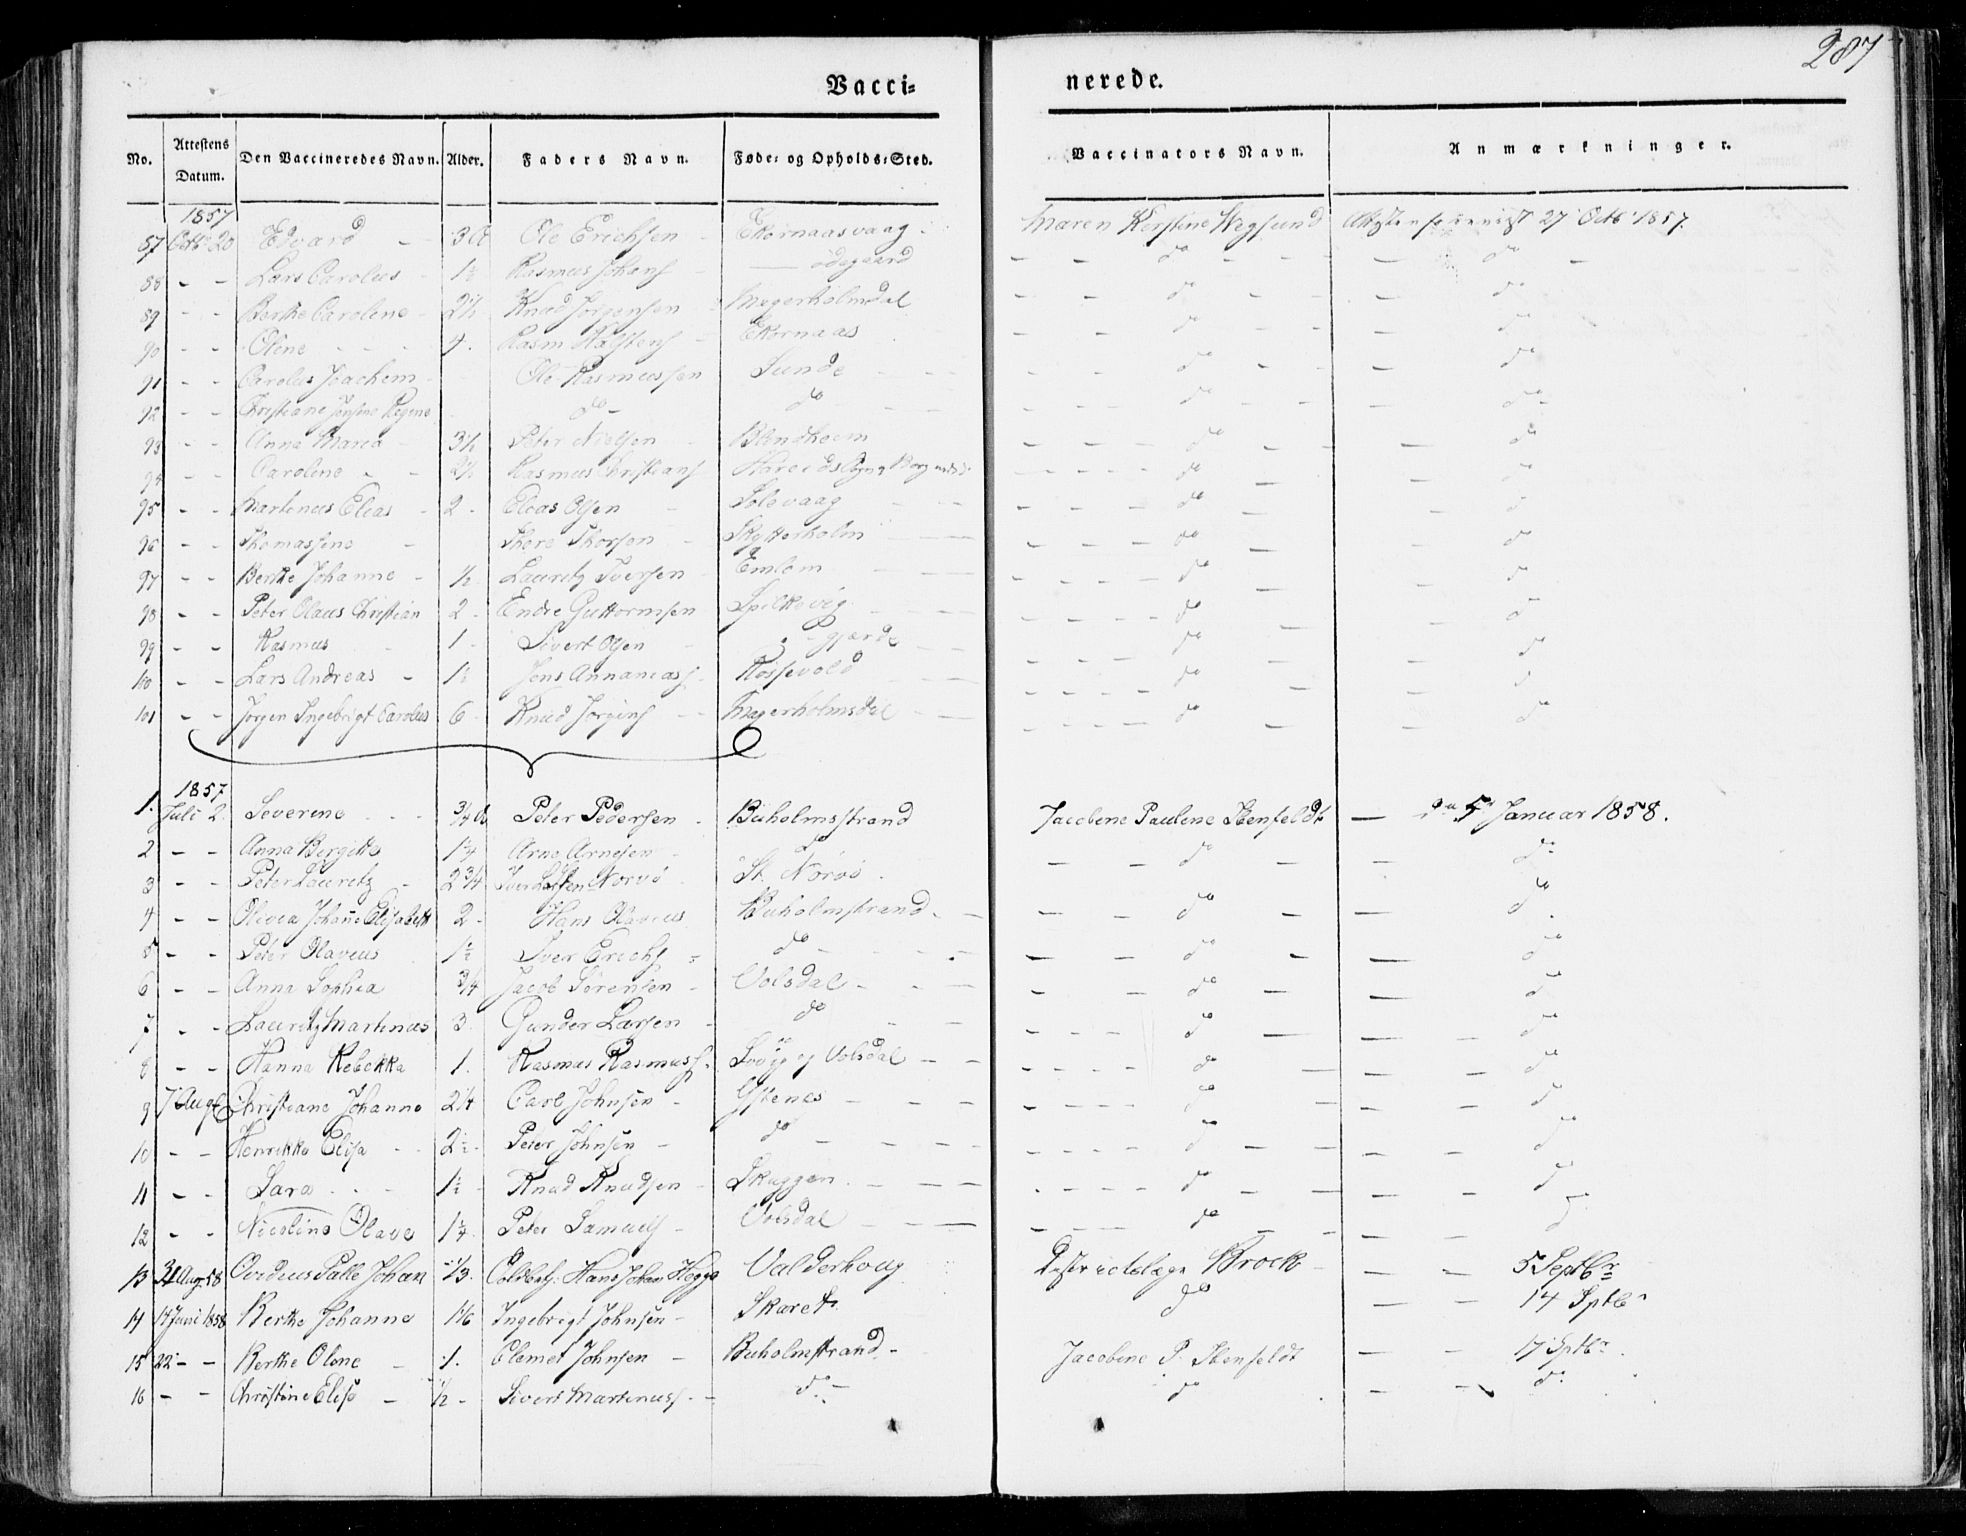 287
Vaccinerede.
No. Attestens Datum. Den Vaccineredes Navn. Alder. Faders Navn. Føde- og Opholds-Sted. Vaccinators Navn. Anmærkninger.
1857
87 Octb 20 Edvard - 3 A Ole Erichsen - Ekornaasvaag - Maren Kerstine Wegsund 27 Octb 1857.
88 - - Lars Carolus - 1½ Rasmus Johans - — ødegaard - - do - - - do -
89 - - Berthe Caroline - 2½ Knud Jørgensen - Magerholmdal - - do - - - do
90 - - Oline - - - 4. Rasm Halstens - Ekornaas - - do - - - do
91 - - Carolus Joachem - Ole Rasmussen Sunde - - - - do - - - do
92 - - Christiane Jensine Regine do - do - - - - do - - - do
93 - - Anna Maria - 3½ Peter Nielsen - Blindheim - - - do - - do
94 - - Caroline - - 2½ Rasmus Christians Hareids Sogn - - - do - - do
95 - - Martinus Elias - 2 - Elias Olsen - Solevaag - - - - - do - - do
96 - - Thomassine - Thore Thorsen - Skytterholm - - - - - do - - do
97 - - Berthe Johanne - ½ - Lauritz Iversen - Emlem - - - - - do - - do
98 - - Peter Olaus Christian 2 - Endre Guttormsen Spilkevig - - - - - do - - do
99 - - Rasmus - 1 - Sivert Olsen - - gjerde - - - - - do - - do
100 - - Lars Andreas - 1½ Jens Annanias - Røssevold - - - - - do - - do
101 - - Jørgen Ingebrigt Carolus 6 - Knud Jørgens - - Magerholmsdal - - - - - do - - do
1857
1. Juli 2. Severine - - - ¾ A Peter Pedersen - Buholmsstrand Jacobine Pauline Stenfeldt — do 5 Januar 1858.
2 - - Anna Birgitte 1¼ Arne Arnesen - do - - do - - do
3 - - Peter Lauritz - 2¾ Iver Larsen Norvø St. Nørvø - do
4 - - Olivia Johanne Elisabeth 2 - Hans Olavius Buholmstrand - - - - do - - do
5 - - Peter Olavius 1½ Iver Erichs - do - - - - - do - - do
6 - - Anna Sophia ¾ Jacob Sørensen - Volsdal - - - - - do - - do
7 - - Lauritz Martinus 3. Gunder Larsen - do - - - - - do - - do
8 - - Hanna Rebekka 1. Rasmus Rasmuss. og Volsdal - - - - - do - - do
9 7 Augt Christiane Johanne 2¼ Carl Johnsen - Ystenes - - - - - do - - do
10 - - Henrikke Elisa - - 2½ - Peter Johnsen - do - - - - - - do - - do
11 - - Sara - - - 1½ - Knud Knudsen - Skuggen - - - - - do - - do
12 - - Nicoline Olave 1¼ Peter Samuels - Volsdal - - - - - do - - do
13 31 Aug 58 Ovidius Palle Johan ⅓. Hans Johan Valderhoug Districtslæge Brock - - - 5 Septbr
14 14 Juni 1858 Berthe Johanne 1⅙ Ingebrigt Johnsen - Skaret do - - 14 Sptbr
15 22 - - Berthe Oline - 1. Clemet Johnsen - Buholmstrand - Jacobine P. Stenfeldt - - 17 Sptbr
16 - - Christine Elise - ½ - Sivert Martinuss. - - do - do - - do